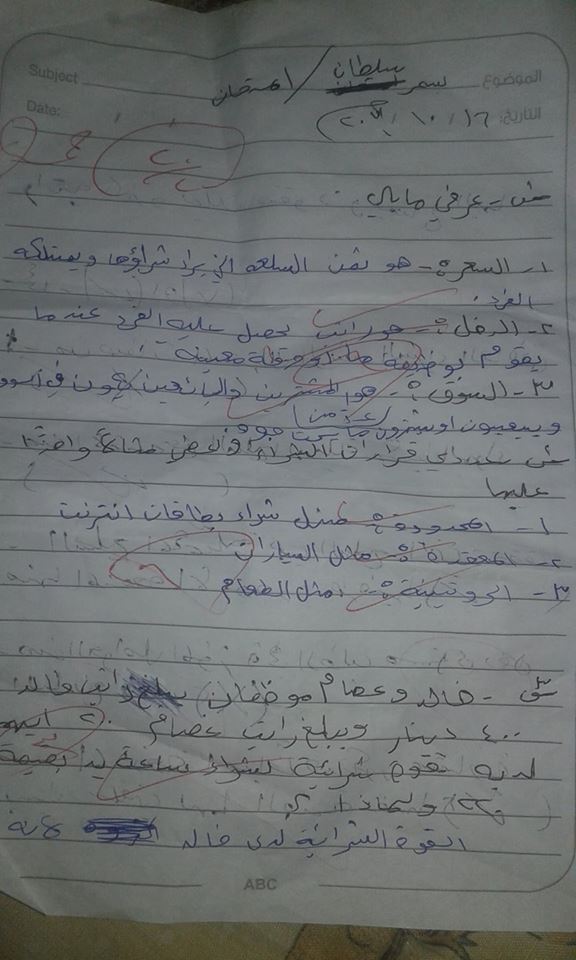 Subject الموضوع
سلطان
بسمر / امتحان
Date: / / التاريخ: ١٦ / ١٠ /
٢٠
س١- عرفي ما يلي
١- السعر :- هو ثمن السلعه الذي يراد شراؤها ويمتلكه
الفرد.
٢- الدخل :- هو راتب يحصل عليه الفرد عندما
يقوم بوظيفة معينة
٣- السوق :- هو المشترين والبائعين
ويبيعون او يشترون
قرارات الشراء مثالاً واحدًا
عليها
١- المحدودة :- مثل شراء بطاقات انترنت
٢- المعقدة :- مثل السيارات
٣- الروتينية :- مثل الطعام
س٣- خالد وعصام موظفان يبلغ راتب خالد
٤٠٠ دينار ويبلغ راتب عصام ايهم
لديه قوة شرائية لشراء ساعة يد بقيمة
ولماذا ؟
القوة الشرائية لدى خالد
ABC